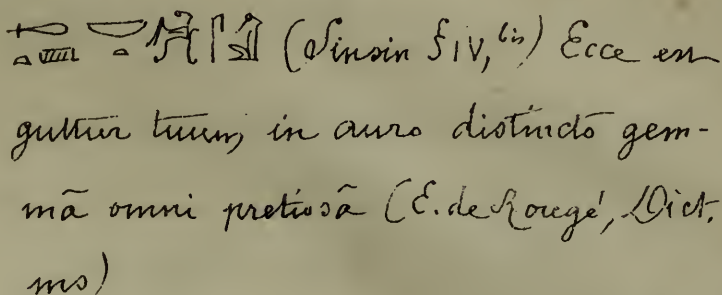 (Sinsin § IV, bis) Ecce en
guttur tuum, in auro distincto gem-
mâ omni pretiosâ (E. de Rougé, Dict.
ms)